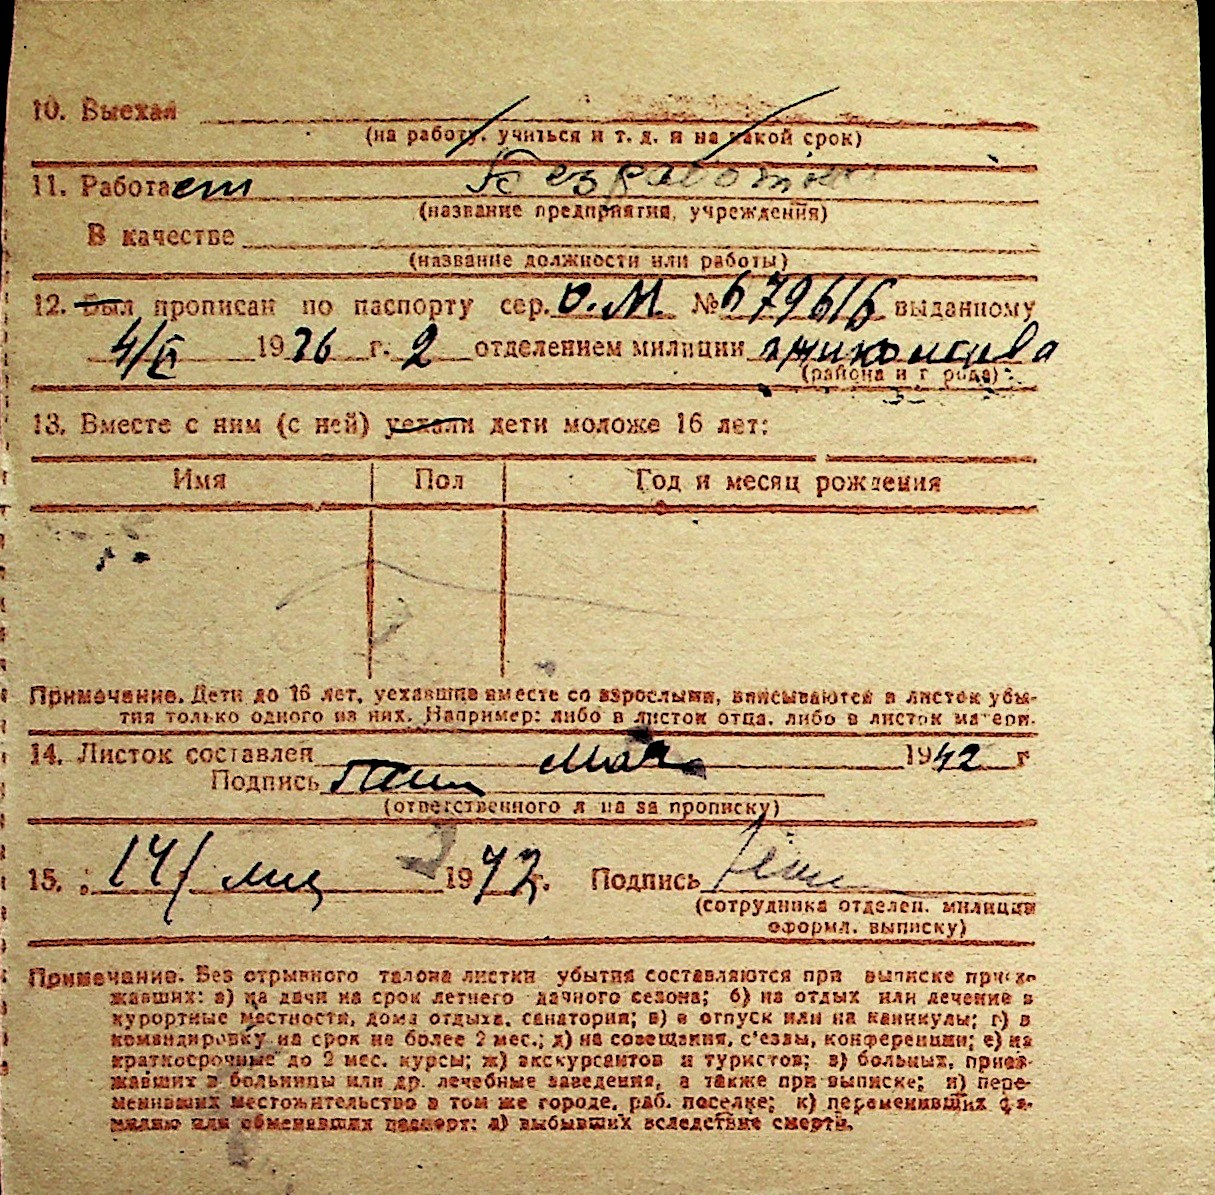 10. Выехал
(на работу, учиться и т. д. и на какой срок)
11. Работает Без работы
(название предприятия, учреждения)
В качестве
(название должности или работы)
12. Был прописан по паспорту сер. О.М. № 679616 выданному
4/II 1936 г. 2 отделением милиции
(района и г рода)
13. Вместе с ним (с ней) уехали дети моложе 16 лет:
Имя Пол Год и месяц рождения
Примечание. Дети до 16 лет, уехавшие вместе со взрослыми, вписываются в листок убы-
тия только одного из них. Например: либо в листок отца, либо в листок матери.
14. Листок составлен мая 1942 г
Подпись
(ответственного л ца за прописку)
15. 14/ 1942 г. Подпись
(сотрудника отделен. милиции
оформл. выписку)
Примечание. Без отрывного талона листки убытия составляются при выписке приез-
жавших: а) на дачи на срок летнего дачного сезона; б) на отдых или лечение в
курортные местности, дома отдыха, санатория; в) в отпуск или на каникулы; г) в
командировку на срок не более 2 мес.; д) на совещания, с'езды, конференции; е) на
краткосрочные до 2 мес. курсы; ж) экскурсантов и туристов; з) больных, приез-
жавших в больницы или др. лечебные заведения, а также при выписке; и) пере-
менивших местожительство в том же городе, раб. поселке; к) переменивших фа-
милию или обменявших паспорт; л) выбывших вследствие смерти.